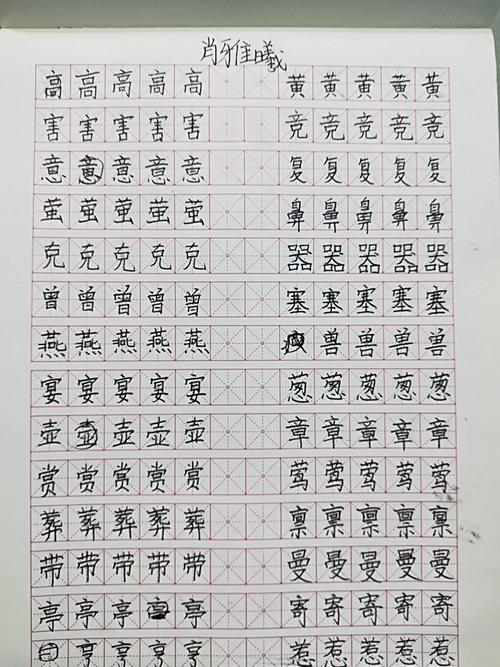 肖雅曦
高高高高高 黄黄黄黄黄
害害害害害 竞竞竞竞竞
意意意意意 复复复复复
萤萤萤萤萤 鼻鼻鼻鼻鼻
克克克克克 器器器器器
曾曾曾曾曾 塞塞塞塞塞
燕燕燕燕燕 兽兽兽兽
宴宴宴宴宴 葱葱葱葱葱
壶壶壶壶 章章章章章
赏赏赏赏赏 莺莺莺莺莺
葬葬葬葬葬 禀禀禀禀禀
带带带带带 曼曼曼曼曼
亭亭亭亭 寄寄寄寄寄
亨亨亨亨 惹惹惹惹惹